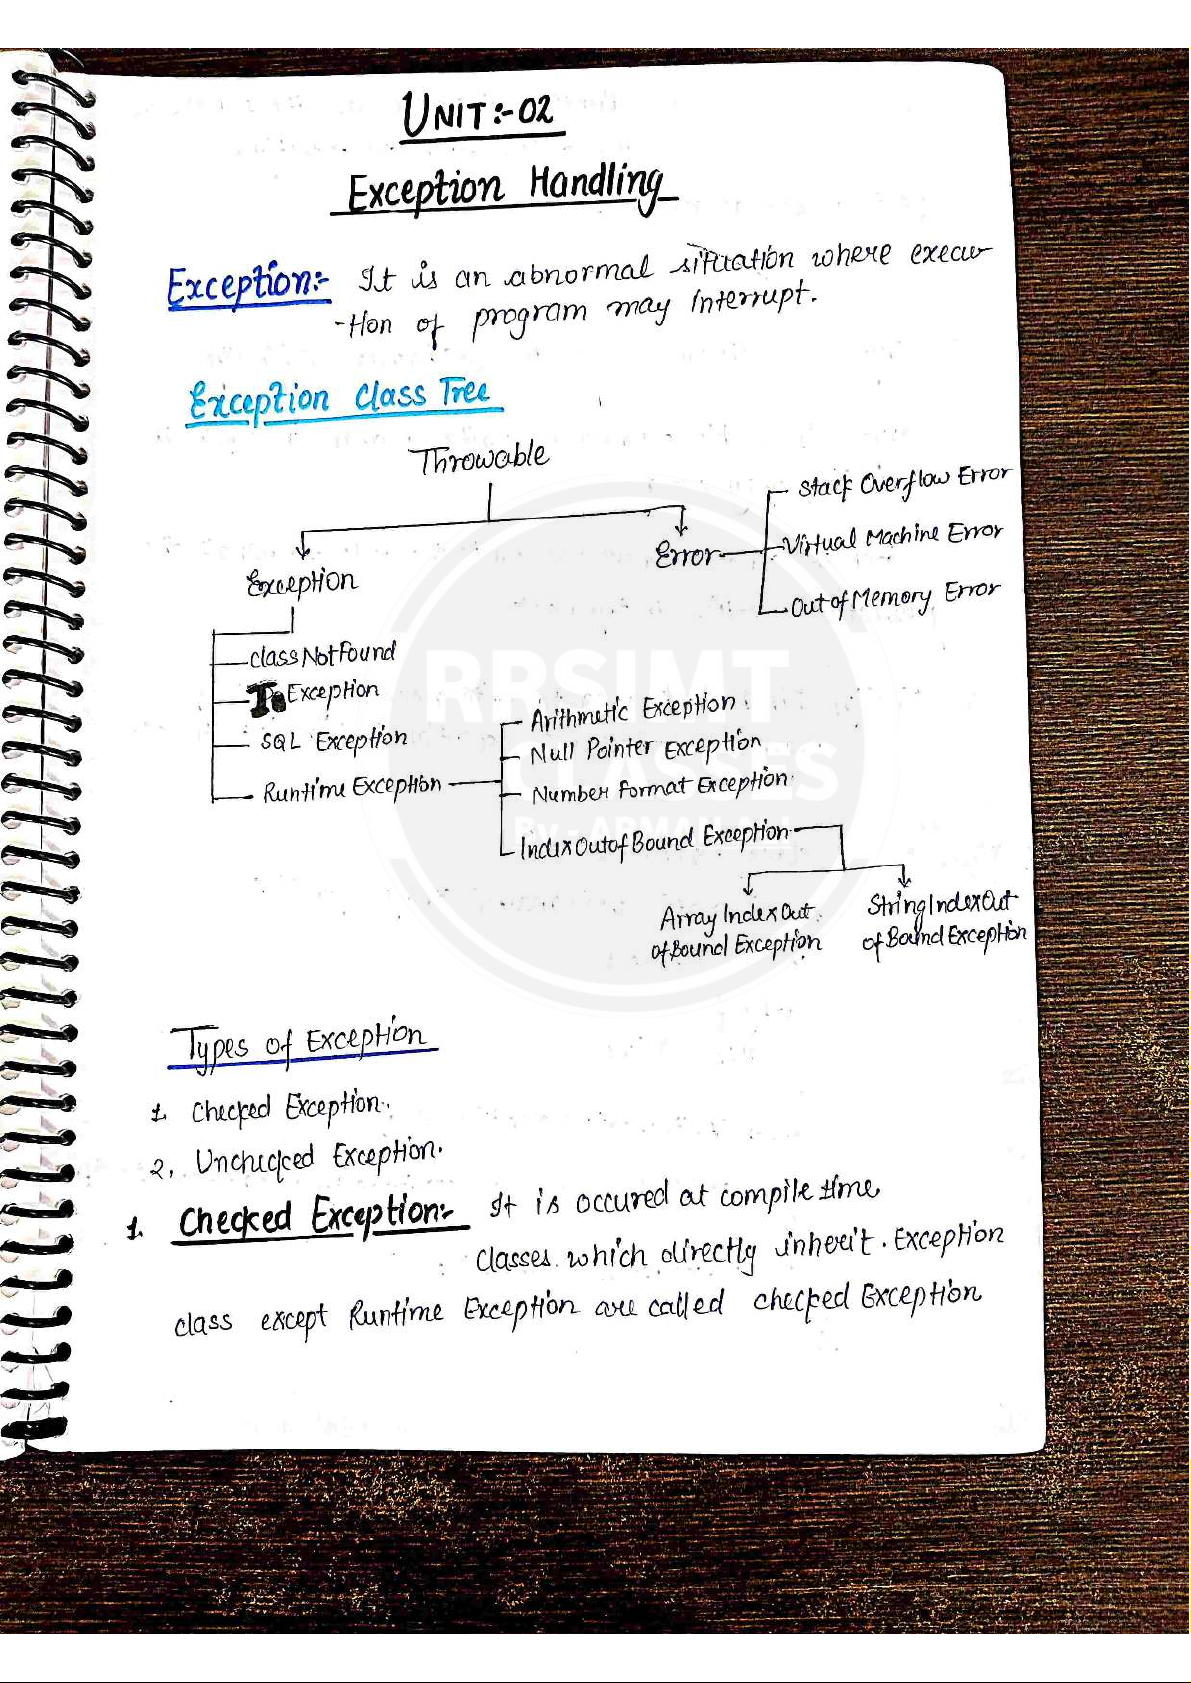 UNIT:-02
Exception Handling
Exception:- It is an abnormal situation where execu-
-tion of program may interrupt.
Exception Class Tree
Throwable
Stack Overflow Error
Error
Virtual Machine Error
Exception
Out of Memory Error
class Not Found
Exception
SQL Exception
Runtime Exception
Arithmetic Exception
Null Pointer Exception
Number Format Exception
Index Out of Bound Exception
Array Index Out
of Bound Exception
String Index Out
of Bound Exception
RRSIMT
CLASSES
Types of Exception
1. Checked Exception.
2. Unchecked Exception.
1. Checked Exception:- It is occured at compile time
classes which directly inherit Exception
class except Runtime Exception are called checked Exception